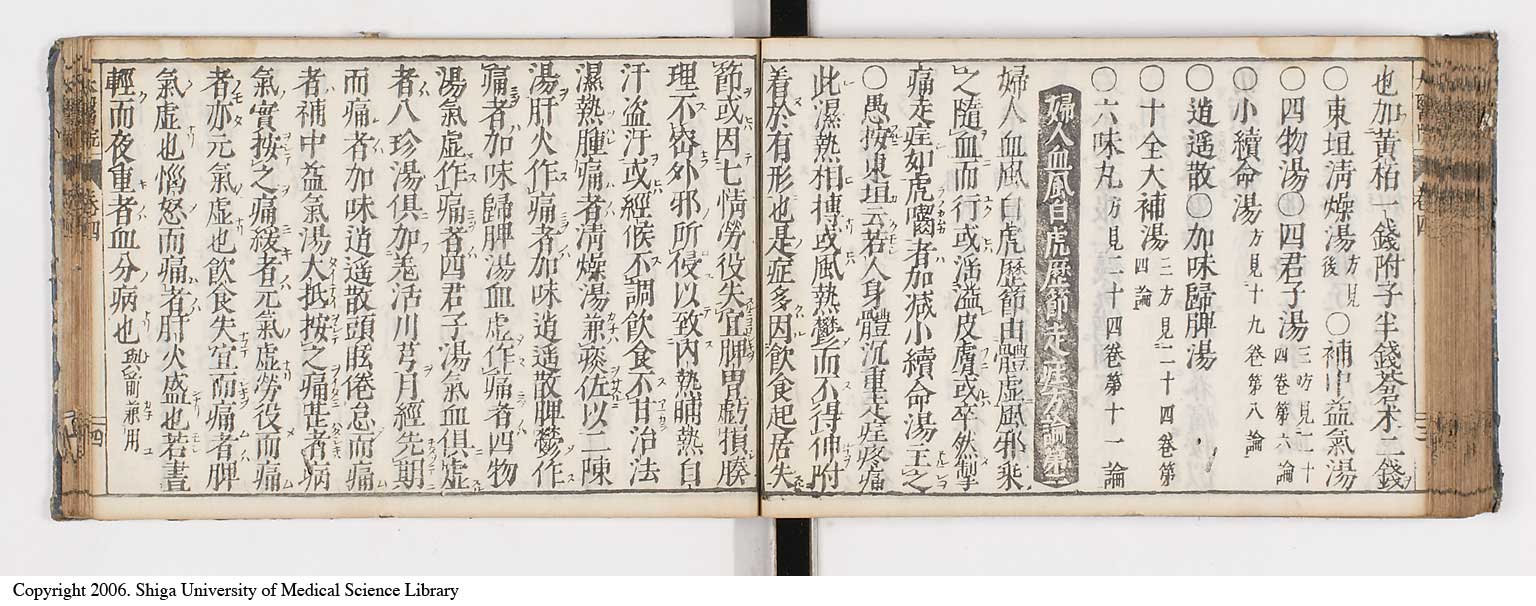 也加黃栢一錢附子半錢蒼朮二錢
〇東垣淸燥湯方見後〇補中益氣湯
〇四物湯〇四君子湯三方見二十四卷第六論
〇小續命湯方見十九卷第八論
〇逍遙散〇加味歸脾湯
〇十全大補湯三方見二十四卷第四論
〇六味丸方見二十四卷第十一論
婦人血風白虎歷節走疰方論第
婦人血風白虎歷節由體虛風邪乘
之隨血而行或淫溢皮膚或卒然掣
痛走疰如虎嚙者加減小續命湯主之
〇愚按東垣云若人身體沉重走疰疼痛
此濕熱相搏或風熱鬱而不得伸附
着於有形也是症多因飲食起居失
節或因七情勞役失宜脾胃虧損腠
理不密外邪所侵以致內熱晡熱自
汗盜汗或經候不調飲食不甘治法
濕熱腫痛者淸燥湯兼痰佐以二陳
湯肝火作痛者加味逍遙散脾鬱作
痛者加味歸脾湯血虛作痛者四物
湯氣虛作痛者四君子湯氣血俱虛
者八珍湯俱加羗活川芎月經先期
而痛者加味逍遙散頭眩倦怠而痛
者補中益氣湯大抵按之痛甚者病
氣實按之痛緩者元氣虛勞役而痛
者亦元氣虛也飲食失宜而痛者脾
氣虛也惱怒而痛者肝火盛也若晝
輕而夜重者血分病也與前兼用
卷四
四
Copyright 2006. Shiga University of Medical Science Library